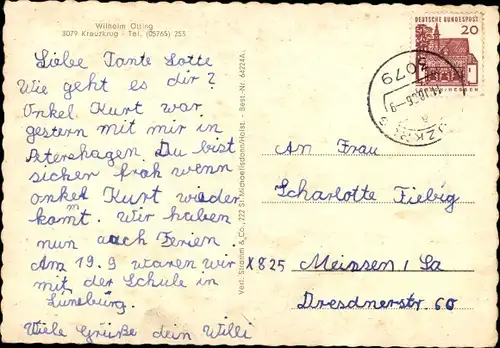 Wilhelm Otting
3079 Kreuzkrug - Tel. (05765) 253
Liebe Tante Lotte
Wie geht es dir?
Onkel Kurt war
gestern mit mir in
Petershagen. Du bist
sicher froh wenn
onkel Kurt wieder
kommt. Wir haben
nun auch Ferien.
Am 19.9 waren wir
mit der Schule in
Lüneburg.
Viele Grüße dein Willi
Verl. Stramm & Co., 222 St. Michaelisdonn/Holst. - Best.-Nr. 64224A.
DEUTSCHE BUNDESPOST
20
3079
An Frau
Scharlotte Fiebig
X825 Meissen, Sa
Dresdnerstr. 60